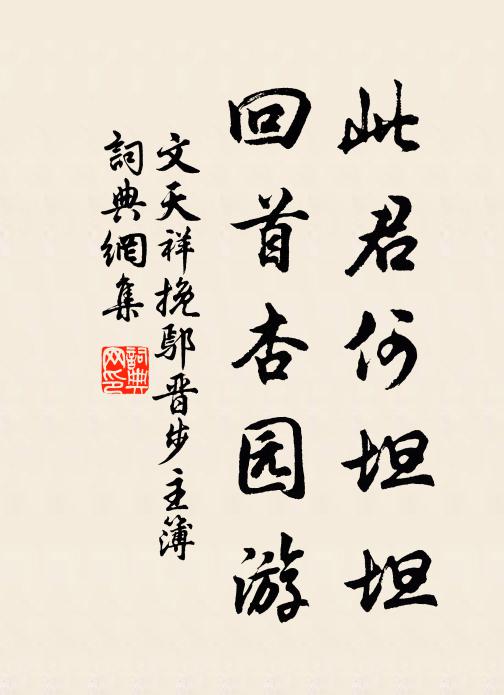 此君何坦坦
回首杏园游
文天祥挽鄢晋步主簿
詞典網集
詞典网印